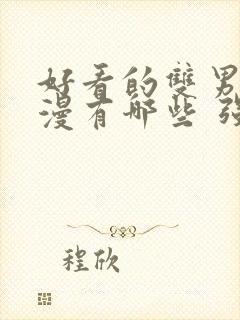 好看的雙男
漫有哪些 強
程欣